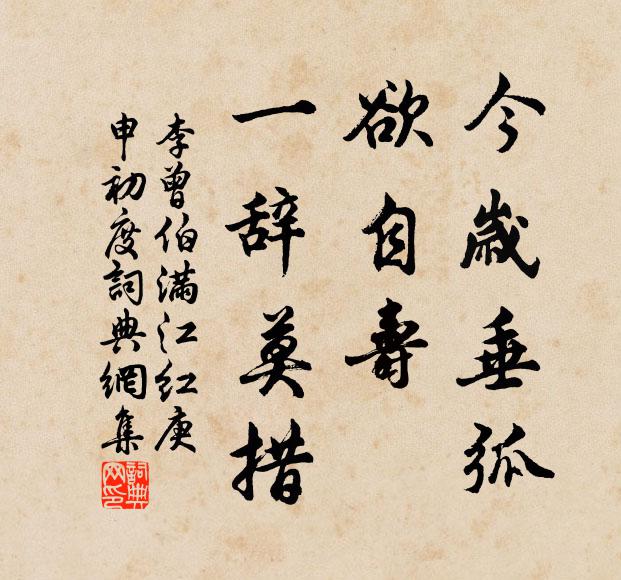 今歲垂弧
欲自壽
一辞莫措
李曾伯滿江紅庚
申初度詞典網集
詞典
网印